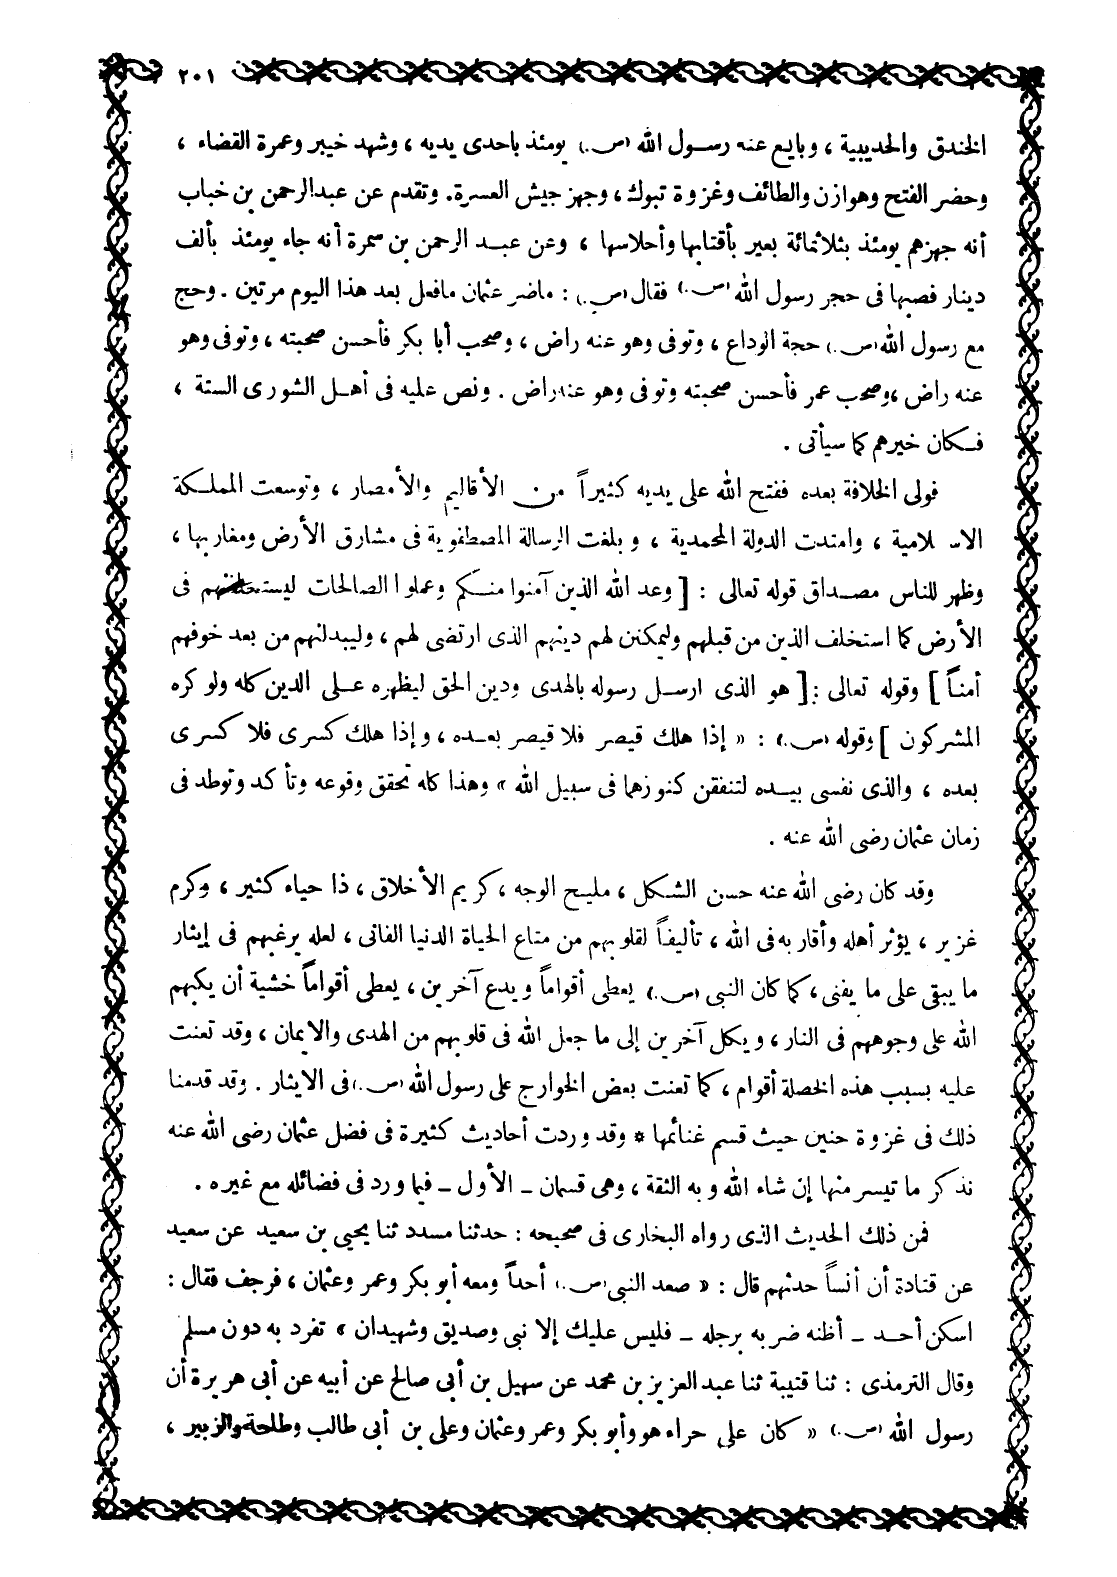 ٢٠١
الخندق والحديبية ، وبايع عنه رسول الله (ص.) يومئذ باحدى يديه ، وشهد خيبر وعمرة القضاء ،
وحضر الفتح وهوازن والطائف وغزوة تبوك ، وجهز جيش العسرة. وتقدم عن عبدالرحمن بن خباب
أنه جهزهم يومئذ بثلاثمائة بعير بأقتابها وأحلاسها ، وعن عبد الرحمن بن سمرة أنه جاء يومئذ بألف
دينار فصبها فى حجر رسول الله (ص.) فقال (ص.) : ماضر عثمان مافعل بعد هذا اليوم مرتين . وحج
مع رسول الله (ص.) حجة الوداع ، وتوفى وهو عنه راض ، وصحب أبا بكر فأحسن صحبته ، وتوفى وهو
عنه راض ،وصحب عمر فأحسن صحبته وتوفى وهو عنه راض . ونص عليه فى أهل الشورى الستة ،
فكان خيرهم كما سيأتى .
فولى الخلافة بعده ففتح الله على يديه كثيراً من الأقاليم والأمصار ، وتوسعت المملكة
الاسلامية ، وامتدت الدولة المحمدية ، وبلغت الرسالة المصطفوية فى مشارق الأرض ومغاربها ،
وظهر للناس مصداق قوله تعالى : [ وعد الله الذين آمنوا منكم وعملوا الصالحات ليستخلفنهم فى
الأرض كما استخلف الذين من قبلهم وليمكنن لهم دينهم الذى ارتضى لهم ، وليبدلنهم من بعد خوفهم
أمناً ] وقوله تعالى :[ هو الذى ارسل رسوله بالهدى ودين الحق ليظهره على الدين كله ولو كره
المشركون ] وقوله (ص.) : « إذا هلك قيصر فلا قيصر بعده ، وإذا هلك كسرى فلا كسرى
بعده ، والذى نفسى بيده لتنفقن كنوزهما فى سبيل الله » وهذا كله تحقق وقوعه وتأكد وتوطد فى
زمان عثمان رضى الله عنه .
وقد كان رضى الله عنه حسن الشكل ، مليح الوجه ، كريم الأخلاق ، ذا حياء كثير ، وكرم
غزير ، يؤثر أهله وأقاربه فى الله ، تأليفاً لقلوبهم من متاع الحياة الدنيا الفانى ، لعله يرغبهم فى إيثار
ما يبقى على ما يفنى ، كما كان النبى (ص.) يعطى أقواماً ويدع آخرين ، يعطى أقواماً خشية أن يكبهم
الله على وجوههم فى النار ، ويكل آخرين إلى ما جعل الله فى قلوبهم من الهدى والايمان ، وقد تعنت
عليه بسبب هذه الخصلة أقوام ، كما تعنت بعض الخوارج على رسول الله (ص.) فى الايثار . وقد قدمنا
ذلك فى غزوة حنين حيث قسم غنائمها * وقد وردت أحاديث كثيرة فى فضل عثمان رضى الله عنه
نذكر ما تيسر منها إن شاء الله وبه الثقة ، وهى قسمان ـ الأول ـ فيما ورد فى فضائله مع غيره .
فمن ذلك الحديث الذى رواه البخارى فى صحيحه : حدثنا مسدد ثنا يحيى بن سعيد عن سعيد
عن قتادة أن أنساً حدثهم قال : « صعد النبى (ص.) أحداً ومعه أبو بكر وعمر وعثمان ، فرجف فقال :
اسكن أحد ـ أظنه ضربه برجله ـ فليس عليك إلا نبى وصديق وشهيدان » تفرد به دون مسلم
وقال الترمذى : ثنا قتيبة ثنا عبد العزيز بن محمد عن سهيل بن أبى صالح عن أبيه عن أبى هريرة أن
رسول الله (ص.) « كان على حراء هو وأبو بكر وعمر وعثمان وعلى بن أبى طالب وطلحة والزبير ،